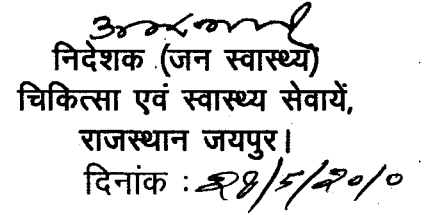 निदेशक (जन स्वास्थ्य)
चिकित्सा एवं स्वास्थ्य सेवायें,
राजस्थान जयपुर।
दिनांक : 28/5/2010